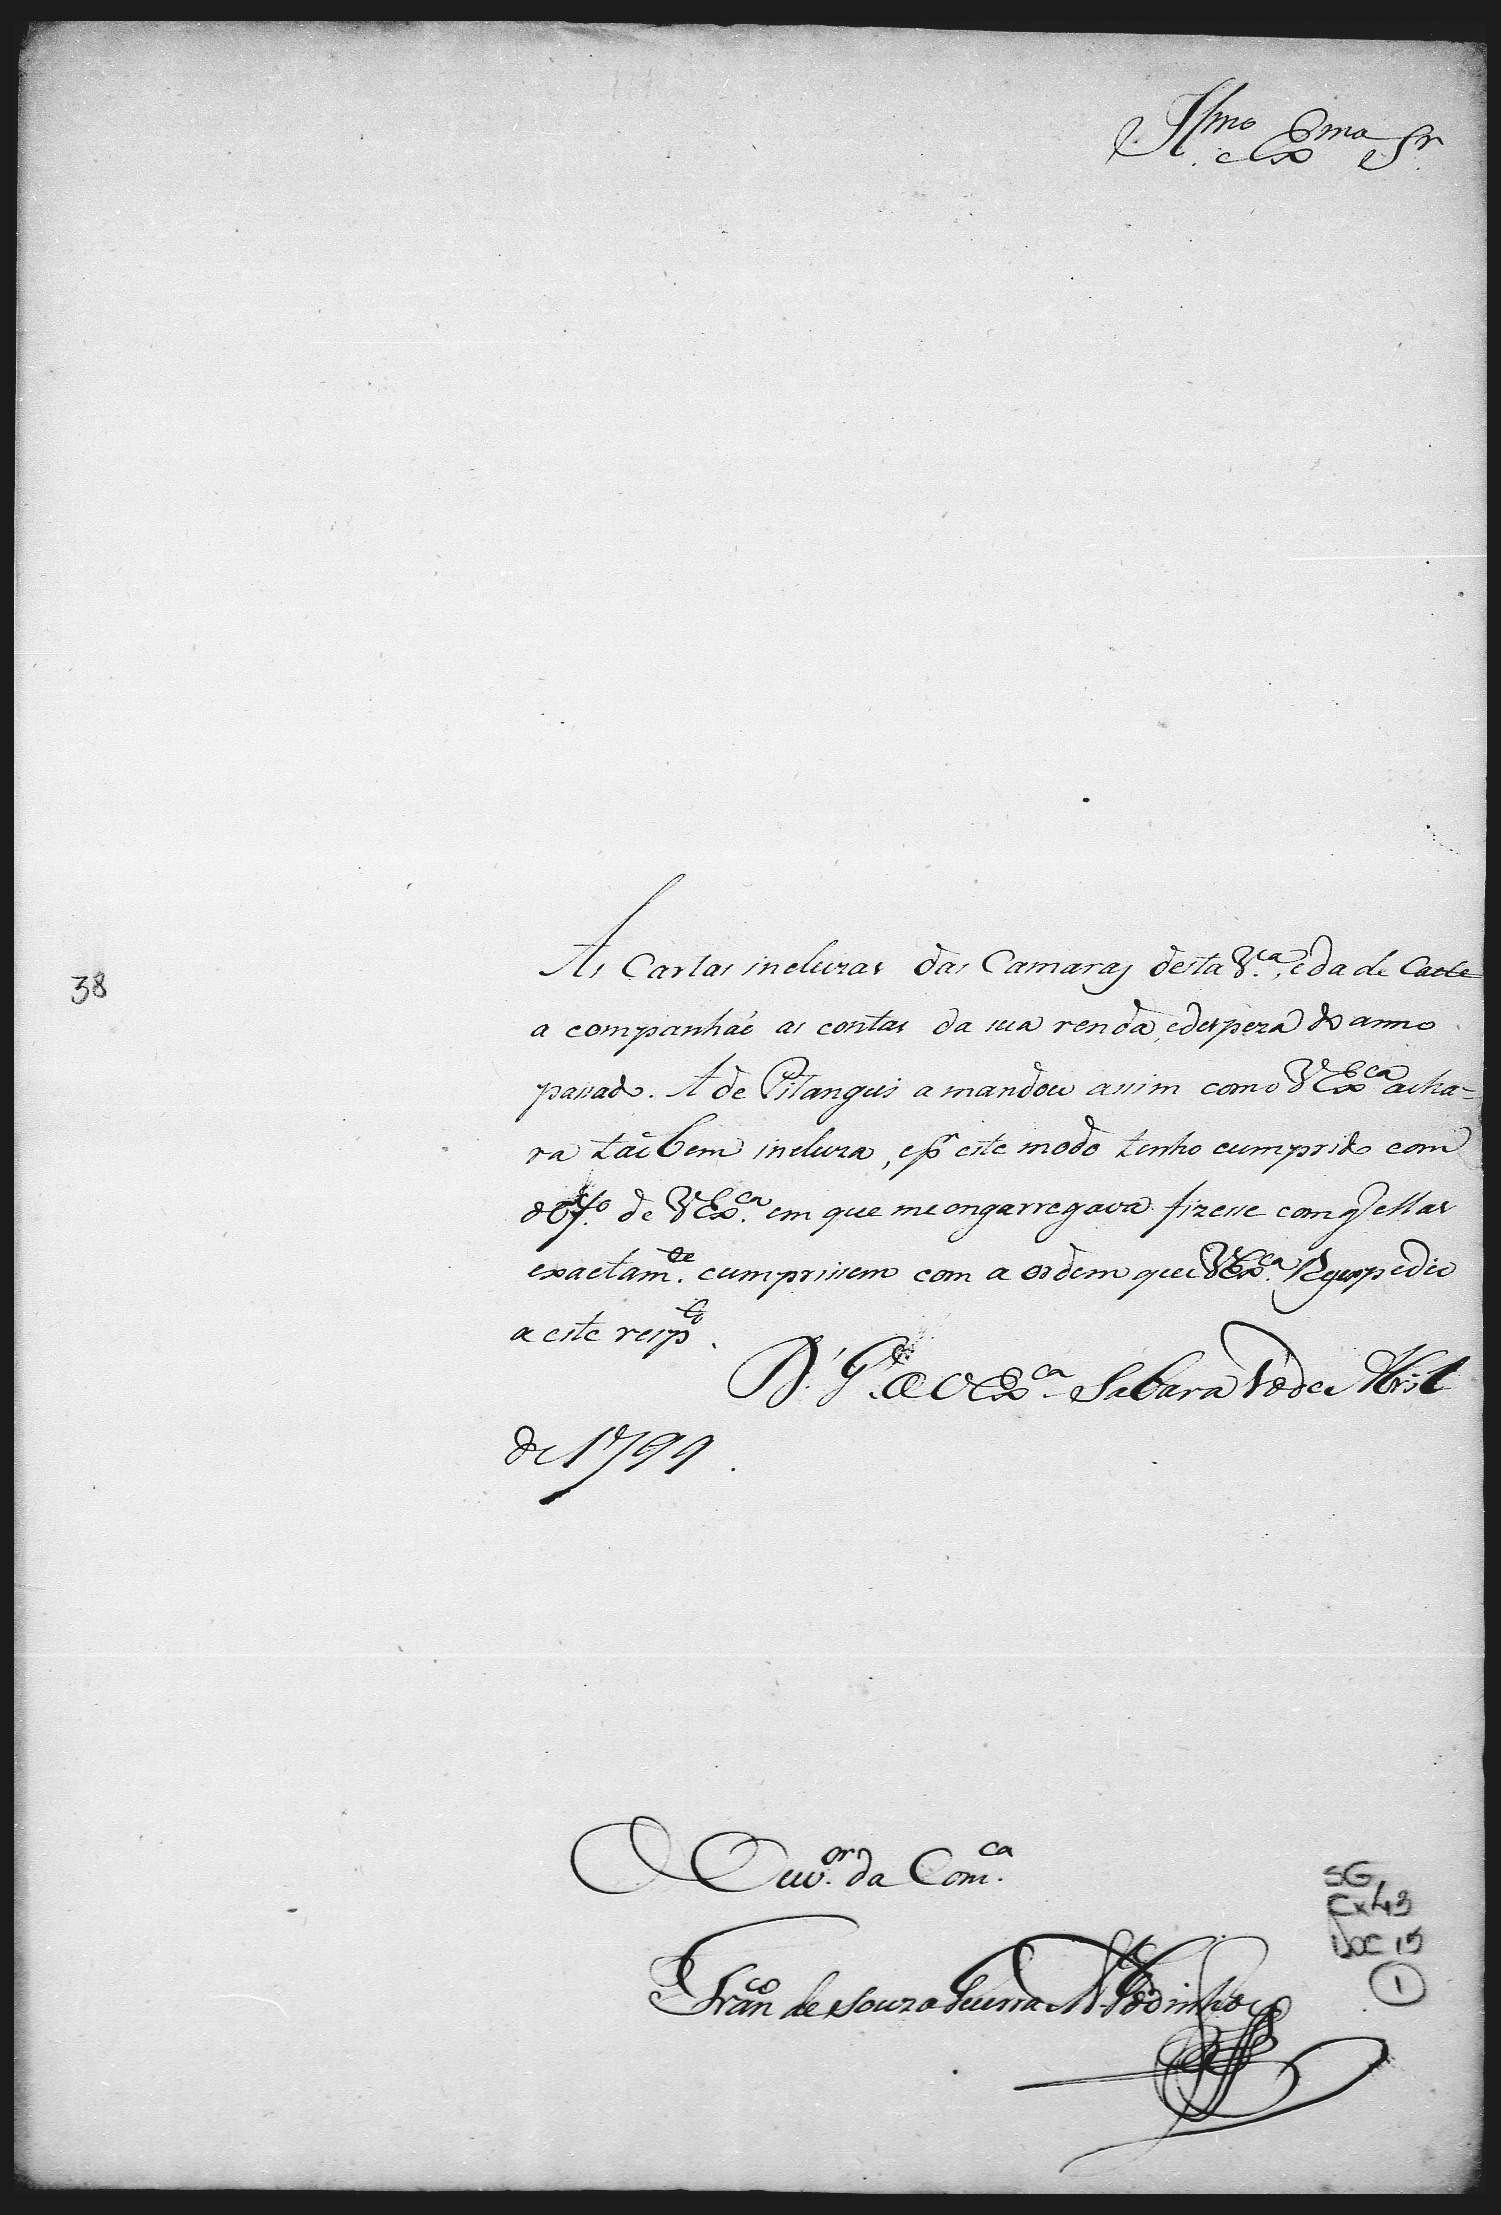 Illmo e Exmo Sr.
As Cartas incluzas das Camaras desta V.ca, e da de Caete
a companhaõ as contas da sua renda, e despeza do anno
passado. A de Pitangui a mandou assim como VEx.ca acha-
ra taõbem incluza, e pr este modo tenho cumprido com
o Off.o de VEx.ca em que me engarregava fizesse com q ellas
exactam.te cumprissem com a ordem que VEx.ca
a este resp.to.
D.s G.de a VEx.ca Sabara de Abril
de 1799.
38
O Ouv.or da Com.ca
Fran.co de Souza Guerra Godinho
SG
Cx 43
Doc 15
1